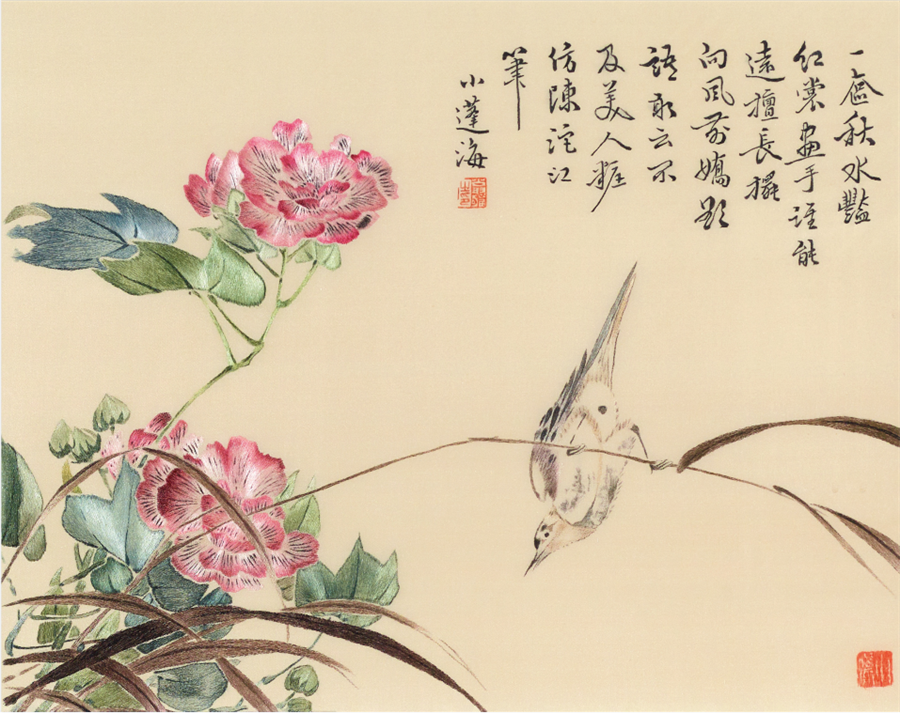 一奩秋水豔
紅裳畫手誰能
遠擅長
向風前嬌欲
語敢云不
及美人粧
仿陳沱江
筆
小蓬海